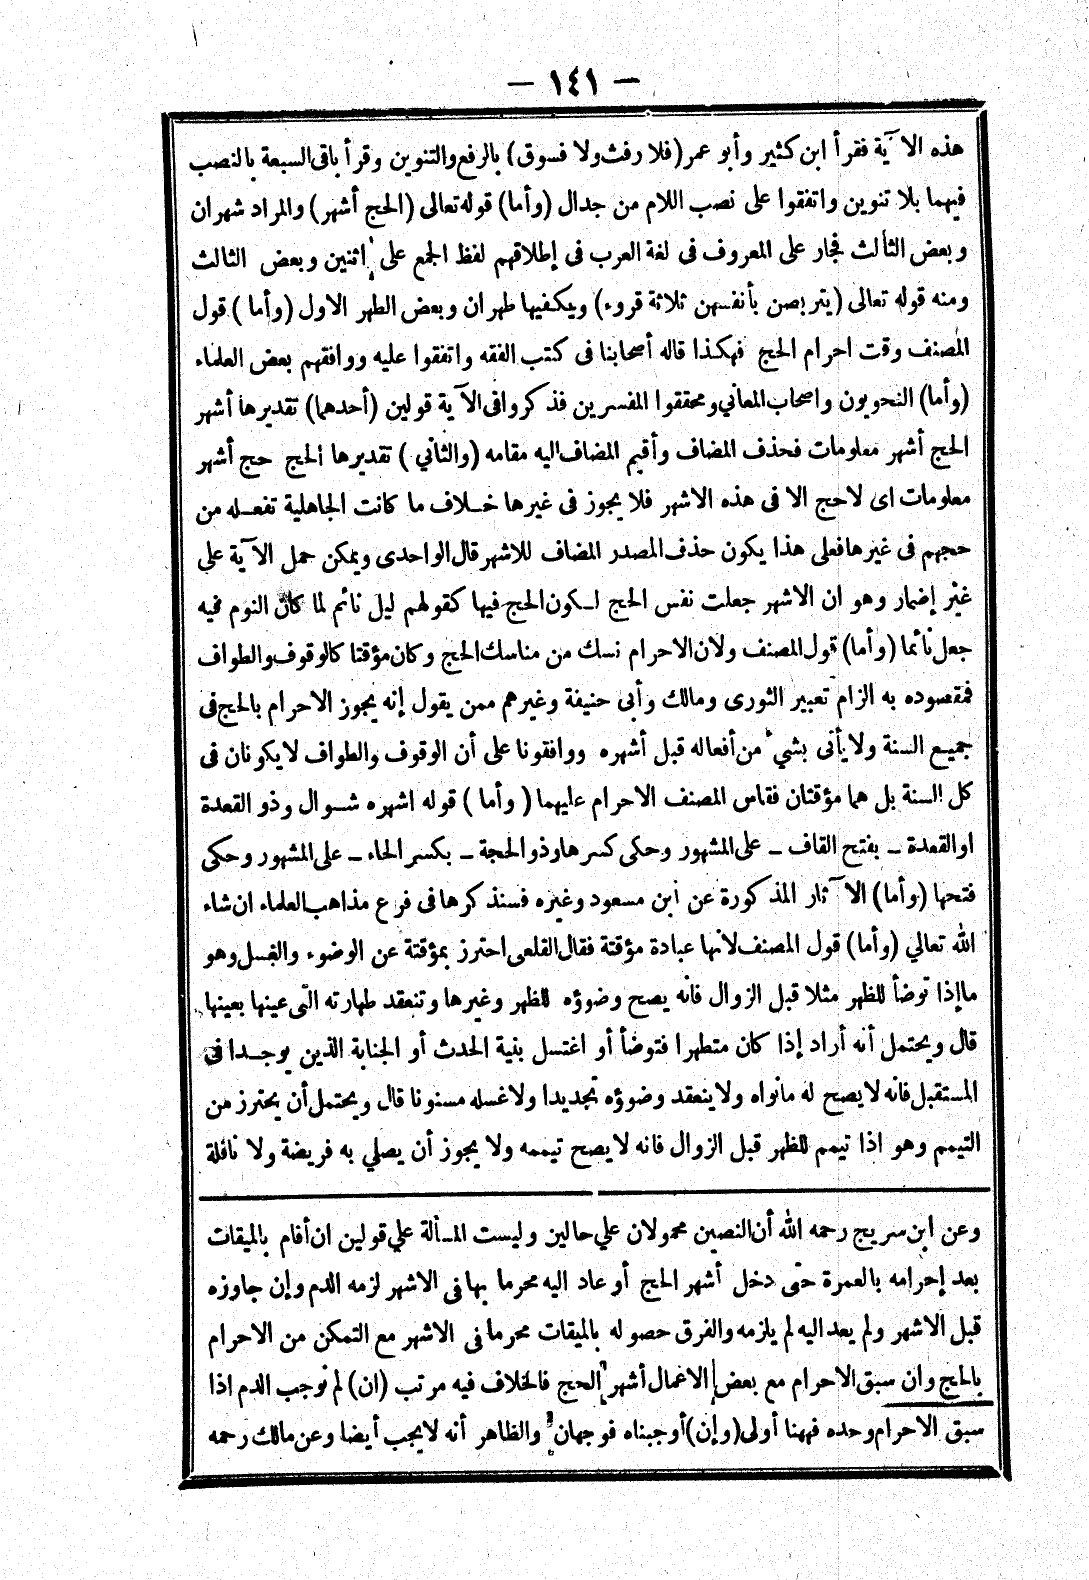 — ١٤١ —
هذه الآية فقرأ ابن كثير وأبو عمر (فلا رفث ولا فسوق) بالرفع والتنوين وقرأ باقى السبعة بالنصب
فيهما بلا تنوين واتفقوا على نصب اللام من جدال (وأما) قوله تعالى (الحج أشهر) والمراد شهران
وبعض الثالث فجار على المعروف فى لغة العرب فى إطلاقهم لفظ الجمع على اثنين وبعض الثالث
ومنه قوله تعالى (يتربصن بأنفسهن ثلاثة قروء) ويكفيها طهران وبعض الطهر الاول (وأما) قول
المصنف وقت احرام الحج فهكذا قاله أصحابنا فى كتب الفقه واتفقوا عليه ووافقهم بعض العلماء
(وأما) النحويون واصحاب المعاني ومحققوا المفسرين فذكروا فى الآية قولين (أحدهما) تقديرها أشهر
الحج أشهر معلومات فحذف المضاف وأقيم المضاف اليه مقامه (والثاني) تقديرها الحج حج أشهر
معلومات اى لا حج الا فى هذه الاشهر فلا يجوز فى غيرها خلاف ما كانت الجاهلية تفعله من
حجهم فى غيرها فعلى هذا يكون حذف المصدر المضاف للاشهر قال الواحدى ويمكن حمل الآية على
غير إضمار وهو ان الاشهر جعلت نفس الحج لكون الحج فيها كقولهم ليل نائم لما كان النوم فيه
جعل نائما (وأما) قول المصنف ولان الاحرام نسك من مناسك الحج وكان مؤقتا كالوقوف والطواف
فمقصوده به الزام تعبير الثورى ومالك وأبى حنيفة وغيرهم ممن يقول إنه يجوز الاحرام بالحج فى
جميع السنة ولا يأتى بشيء من أفعاله قبل أشهره ووافقونا على أن الوقوف والطواف لا يكونان فى
كل السنة بل هما مؤقتان فقاس المصنف الاحرام عليهما (وأما) قوله اشهره شوال وذو القعدة
او القعدة ــ بفتح القاف ــ على المشهور وحكى كسرها وذو الحجة ــ بكسر الحاء ــ على المشهور وحكى
فتحها (وأما) الآثار المذكورة عن ابن مسعود وغيره فسنذكرها فى فرع مذاهب العلماء ان شاء
الله تعالي (وأما) قول المصنف لانها عبادة مؤقتة فقال القلعى احترز بمؤقتة عن الوضوء والغسل وهو
ما إذا توضأ للظهر مثلا قبل الزوال فانه يصح وضوؤه للظهر وغيرها وتنعقد طهارته التى عينها بعينها
قال ويحتمل أنه أراد إذا كان متطهرا فتوضأ أو اغتسل بنية الحدث أو الجنابة الذين يوجدا فى
المستقبل فانه لا يصح له مانواه ولا ينعقد وضوؤه تجديدا ولا غسله مسنونا قال ويحتمل أن يحترز من
التيمم وهو اذا تيمم للظهر قبل الزوال فانه لا يصح تيممه ولا يجوز أن يصلي به فريضة ولا نافلة
وعن ابن سريج رحمه الله أن النصين محمولان علي حالين وليست المسألة علي قولين ان أقام بالميقات
بعد إحرامه بالعمرة حتى دخل أشهر الحج أو عاد اليه محرما بها فى الاشهر لزمه الدم وإن جاوزه
قبل الاشهر ولم يعد اليه لم يلزمه والفرق حصوله بالميقات محرما فى الاشهر مع التمكن من الاحرام
بالحج وان سبق الاحرام مع بعض الاعمال أشهر الحج فالخلاف فيه مرتب (ان) لم نوجب الدم اذا
سبق الاحرام وحده فههنا أولى (وإن) أوجبناه فوجهان والظاهر أنه لا يجب أيضا وعن مالك رحمه